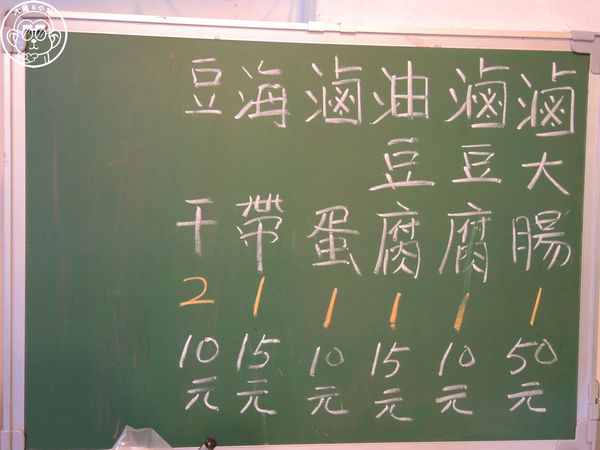 滷大腸1 50元
滷豆腐1 10元
油豆腐1 15元
滷蛋1 10元
海帶1 15元
豆干2 10元